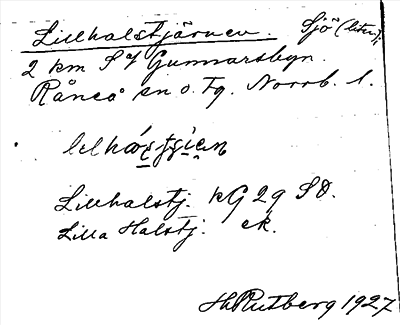 Lillhalstjärnen. Sjö (liten);
2 km S of Gunnarsbyn.
Råneå sn o. Tg. Norrb. l.
Lillhalstj. KG 29 SO.
Lilla Halstj. ek.
H Rutberg 1927